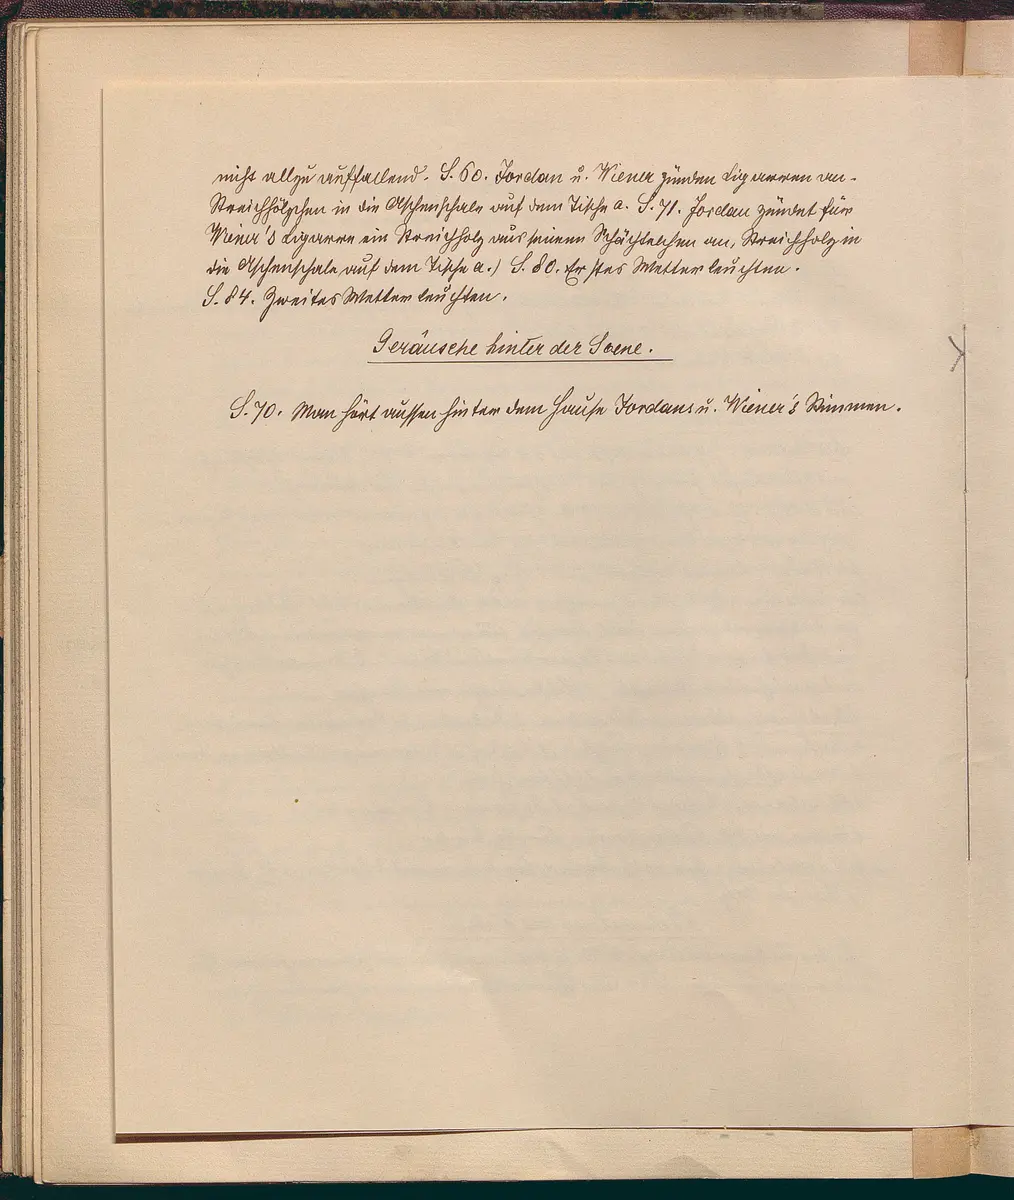 nicht allzu auffallend. S. 60. Jordan u. Wiener zünden Cigarren an-
Streichhölzchen in die Aschenschale auf dem Tische a. S. 71. Jordan zündet für
Wiener's Cigarre ein Streichholz aus seinem Schächtelchen an, Streichholz in
die Aschenschale auf dem Tische a.) S. 80. Erstes Wetterleuchten.
S. 84. Zweites Wetterleuchten.
Geräusche hinter der Scene.
S. 70. Man hört aussen hinter dem Hause Jordans u. Wiener's Stimmen.